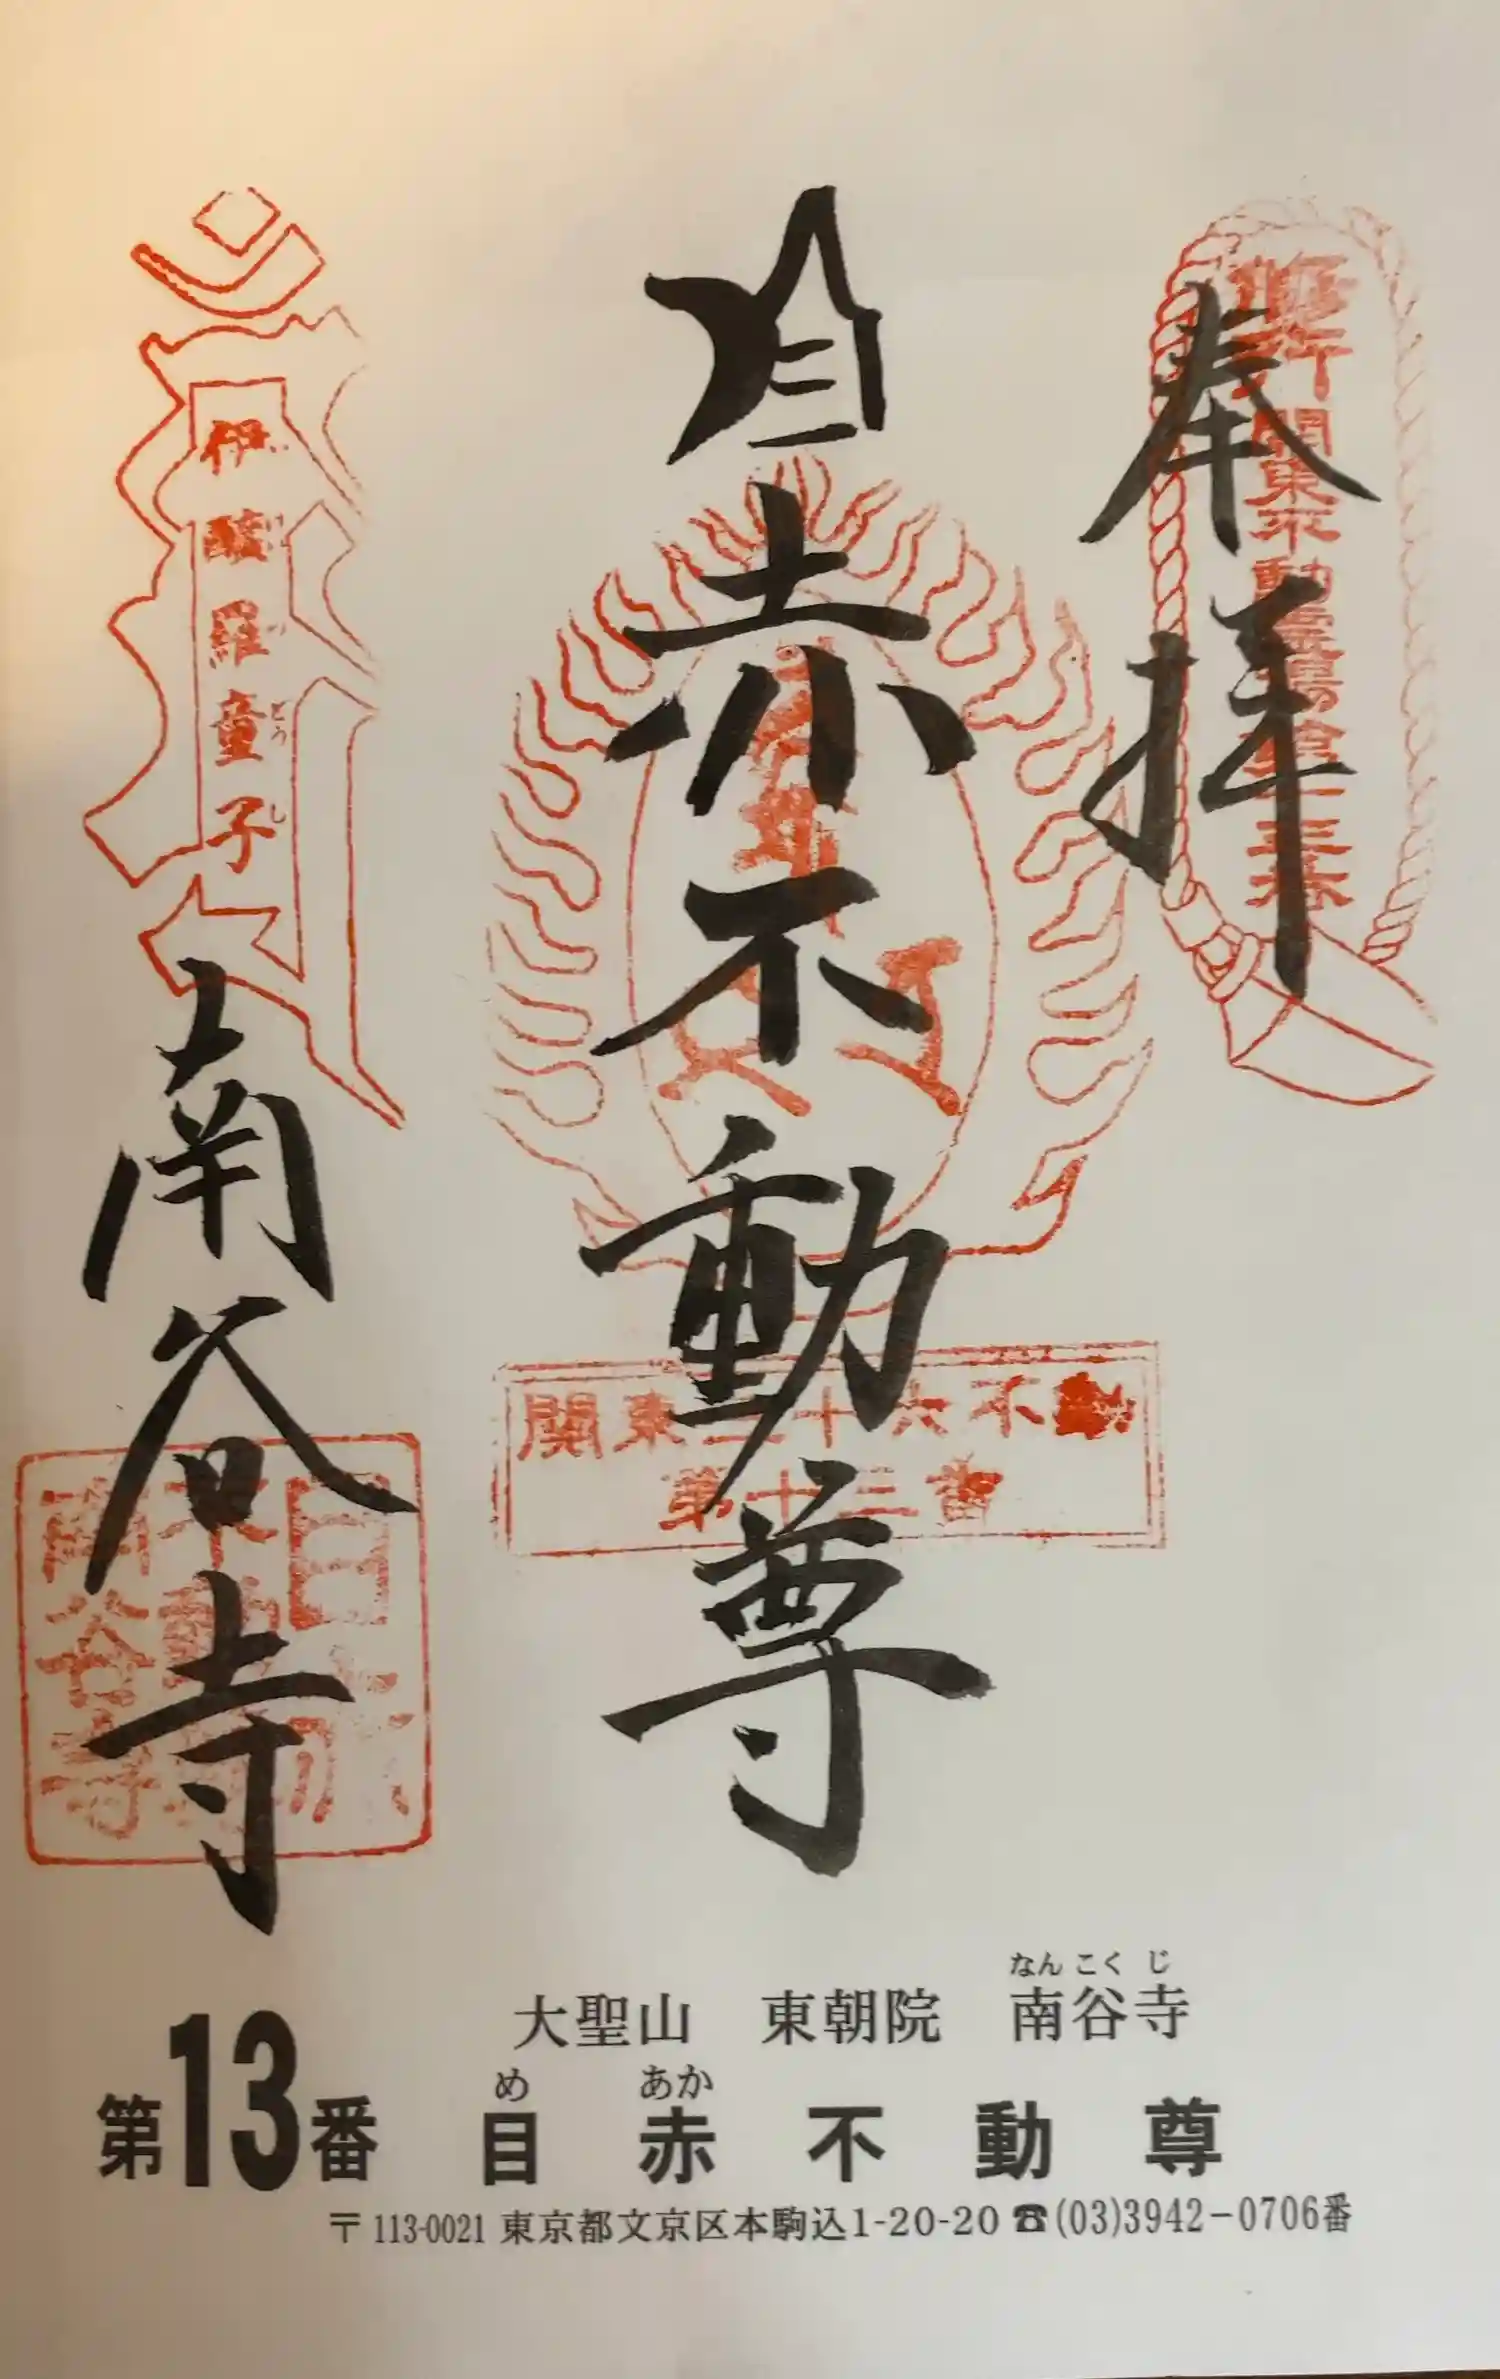 奉拝
目赤不動尊
南谷寺
関東三十六不動
第十三番
伊醯羅童子
どうじ
南谷寺
なんこくじ
大聖山 東朝院 南谷寺
め あか
第13番 目赤不動尊
〒113-0021 東京都文京区本駒込1-20-20 ☎(03)3942-0706番